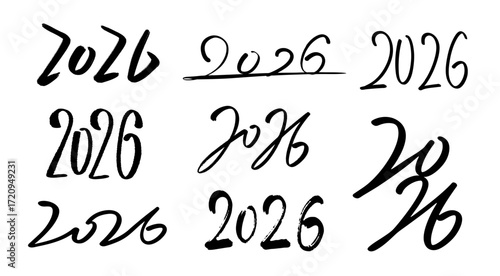 2026 2026 2026
2026 2026 20
26
2026 2026
Adobe Stock | #1720949231